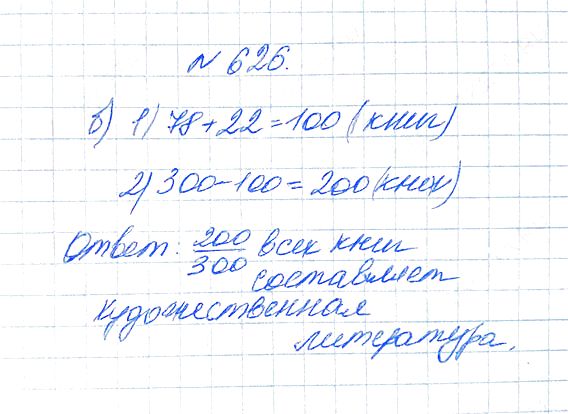 № 626.
б) 1) 78+22=100 (книг)
2) 300-100=200 (книг)
Ответ: 200/300 всех книг
составляет
художественная
литература.